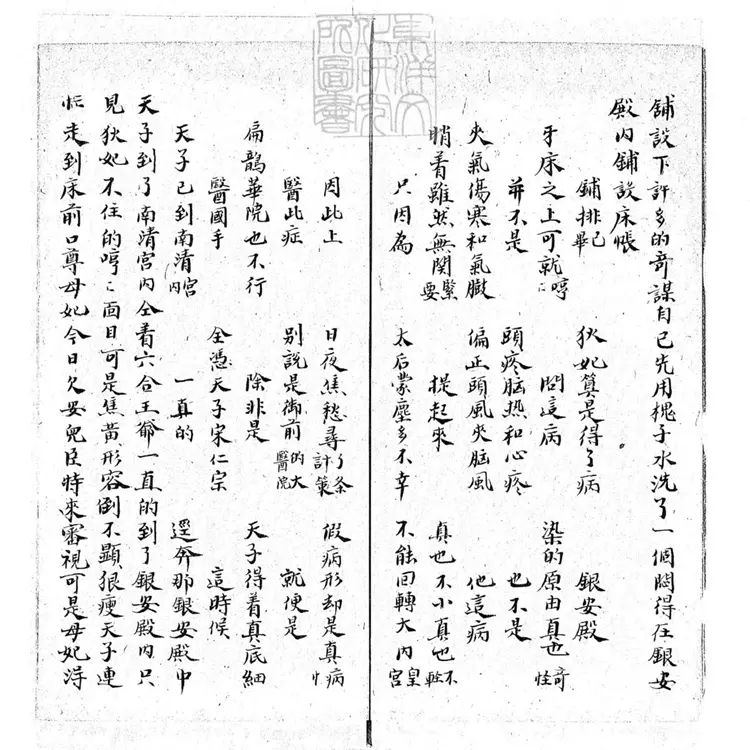 東洋文
化研究
所圖書
舖設下許多的奇謀自己先用槐子水洗了一個臉得在銀安
殿内鋪設床帳
鋪排已畢 狄妃算是得了病 銀安殿
牙床之上可就哼〻 問這病 染的原由真也奇怪
並不是 頭疼脑热和心疼 也不是
夾氣傷寒和氣臌 偏正頭風夾脑風 他這病
瞧着雖然無関緊要 提起來 真也不小真也不輕
只因為 太后蒙塵多不幸 不能回轉大内皇宮
因此上 日夜焦愁尋了条計策 假病形却是真病
醫此症 別說是御前的大醫院 就便是
扁鵲華陀也不行 除非是 天子得着真底細
醫國手 仝憑天子宋仁宗 這時候
天子已到南清宮内 一直的 逕奔那銀安殿中
天子到了南清宮内仝着六合王爺一直的到了銀安殿内只
見狄妃不住的哼〻面目可是焦黃形容倒不顯狠瘦天子連
忙走到床前口尊母妃今日欠安兒臣特來審視可是母妃得